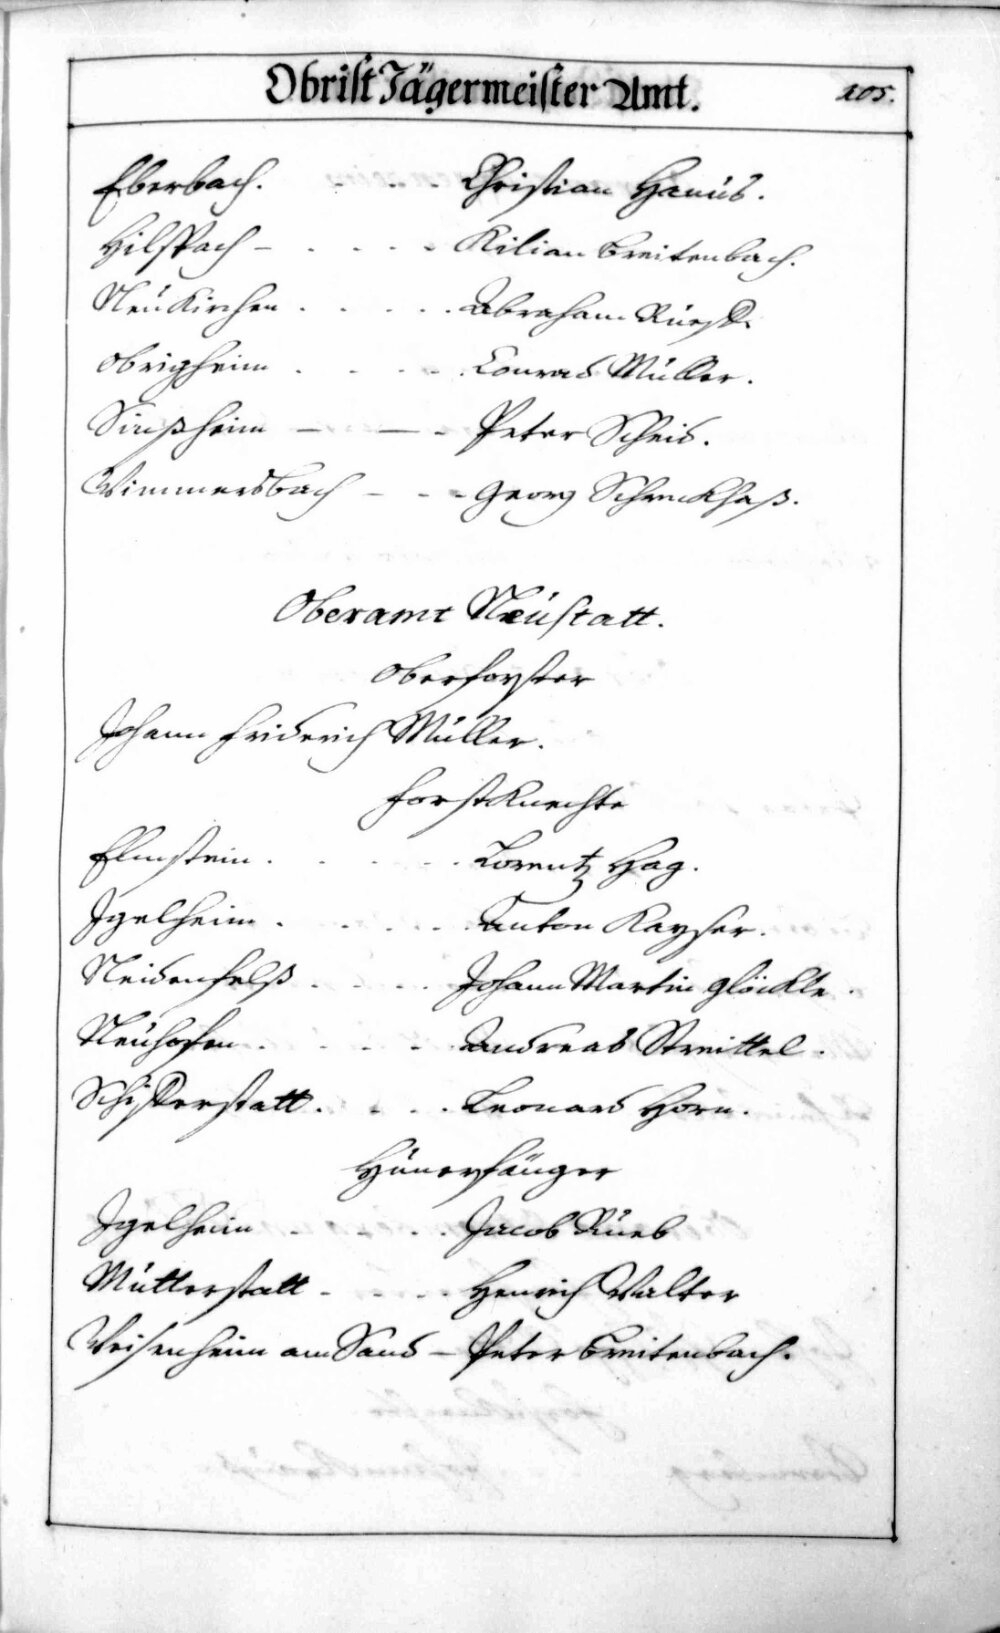 Obrist Jägermeister Amt. 105.
Eberbach. - - - Christian Hanus.
Hilspach - . . . . Kilian Breitenbach.
Neukirchen . . . . . Abraham
Obrigheim . . . . Conrad Müller.
Sinßheim — — - Peter Scheid.
Wimmersbach - - - Georg Schreckhaß.
Oberamt Neustatt.
Oberforster
Johann Friderich Müller.
Forstknechte
Elmstein . . . . . Lorentz Hag.
Igelheim . . . . . Anton Kayser.
Neidenfelß . . . . Johann Martin Glöckle.
Neuhofen . . . . . Andreas Streittel.
Schifferstatt . . . . Leonard Horn.
Hünerfänger
Igelheim . . . . Jacob Rueb
Mutterstatt . . . . Henrich Walter
Weisenheim am Sand — Peter Breitenbach.